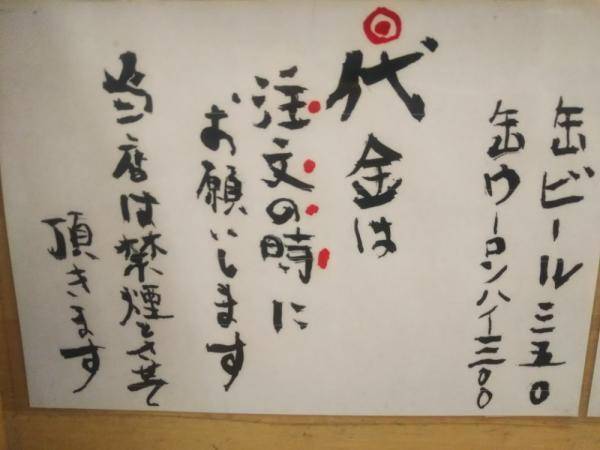 缶ビール三五〇
缶ウーロンハイ三〇〇
代金は
注文の時に
お願いします
当店は禁煙とさせて
頂きます